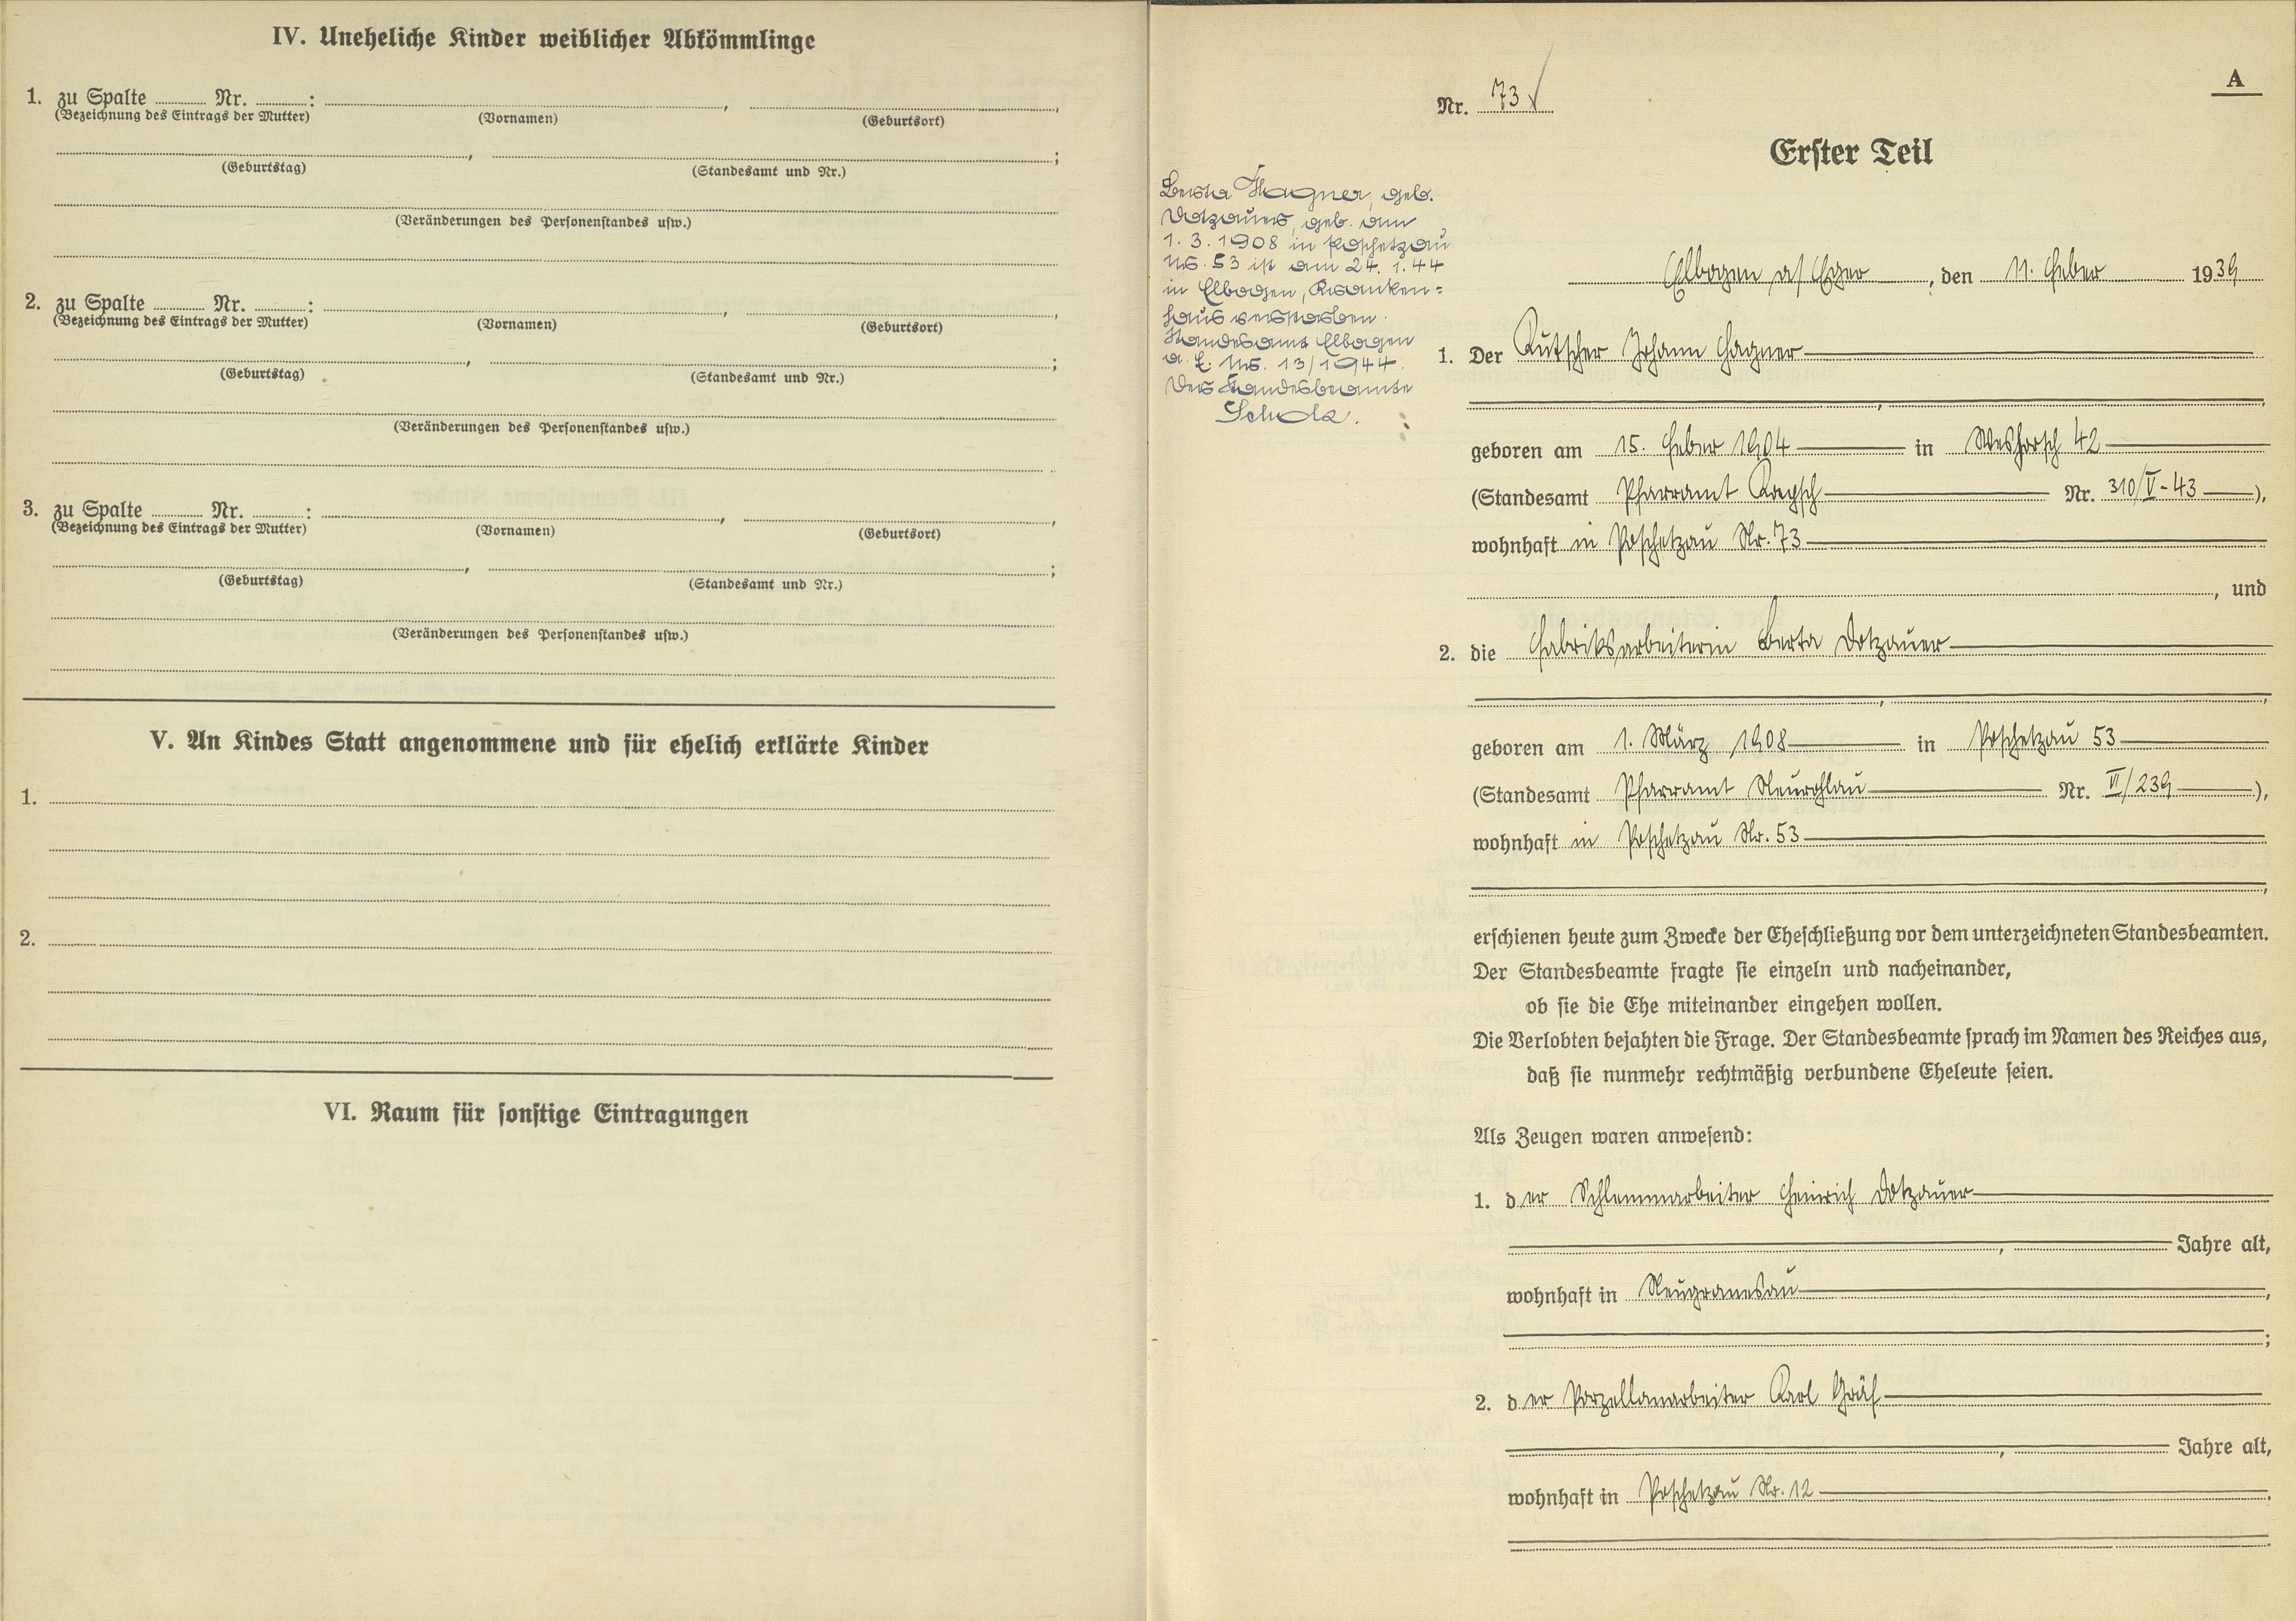 IV. Uneheliche Kinder weiblicher Abkömmlinge
1. zu Spalte ........ Nr. ........: ........, ........,
(Bezeichnung des Eintrags der Mutter) (Vornamen) (Geburtsort)
........, ........;
(Geburtstag) (Standesamt und Nr.)
(Veränderungen des Personenstandes usw.)
2. zu Spalte ........ Nr. ........: ........, ........,
(Bezeichnung des Eintrags der Mutter) (Vornamen) (Geburtsort)
........, ........;
(Geburtstag) (Standesamt und Nr.)
(Veränderungen des Personenstandes usw.)
3. zu Spalte ........ Nr. ........: ........, ........,
(Bezeichnung des Eintrags der Mutter) (Vornamen) (Geburtsort)
........, ........;
(Geburtstag) (Standesamt und Nr.)
(Veränderungen des Personenstandes usw.)
V. An Kindes Statt angenommene und für ehelich erklärte Kinder
1.
2.
VI. Raum für sonstige Eintragungen
A
Nr. 73
Erster Teil
Berta Hagner, geb.
Dotzauer, geb. am
1. 3. 1908 in Poschetzau
Nr. 53 ist am 24. 1. 44
in Elbogen, Kranken=
haus verstorben.
Standesamt Elbogen
a. E. Nr. 13/1944.
Der Standesbeamte
Scholz.
Elbogen a/Eger, den 11. Feber 1939
1. Der Kutscher Johann Hagner
geboren am 15. Feber 1904 in 42
(Standesamt Pfarramt Nr. 310/V-43),
wohnhaft in Poschetzau Nr. 73
, und
2. die Fabriksarbeiterin Berta Dotzauer
geboren am 1. März 1908 in Poschetzau 53
(Standesamt Pfarramt Neurohlau Nr. VI/239),
wohnhaft in Poschetzau Nr. 53
erschienen heute zum Zwecke der Eheschließung vor dem unterzeichneten Standesbeamten.
Der Standesbeamte fragte sie einzeln und nacheinander,
ob sie die Ehe miteinander eingehen wollen.
Die Verlobten bejahten die Frage. Der Standesbeamte sprach im Namen des Reiches aus,
daß sie nunmehr rechtmäßig verbundene Eheleute seien.
Als Zeugen waren anwesend:
1. der Schlemmarbeiter Heinrich Dotzauer
, Jahre alt,
wohnhaft in Neugranesau,
;
2. der Porzellanarbeiter Karl Gräf
, Jahre alt,
wohnhaft in Poschetzau Nr. 12.